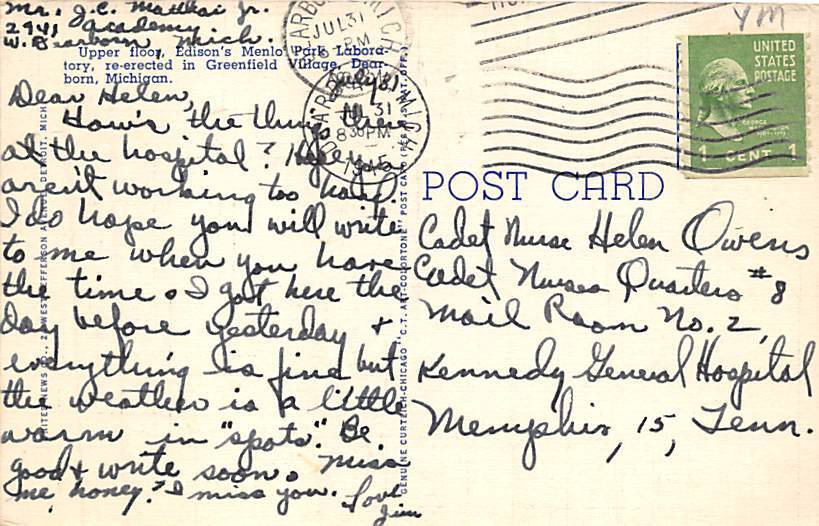 Mr. J.C. Matthai Jr.
2941 Academy
W. Dearborn Mich.
Upper floor, Edison's Menlo Park Labora-
tory, re-erected in Greenfield Village, Dear-
born, Michigan.
July 31
Dear Helen,
How's the things there
at the hospital? Hope you
aren't working too hard.
I do hope you will write
to me when you have
the time. I got here the
day before yesterday &
everything is fine but
the weather is a little
warm in "spots". Be
good & write soon. Miss
me, honey? I miss you. Love
Jim
JUL 31
PM
DEARBORN, MICH.
JUL 31
8 30 PM
1945
GENUINE CURTEICH-CHICAGO "C.T. ART-COLORTONE" POST CARD (REG. U.S. PAT. OFF.)
YM
UNITED
STATES
POSTAGE
1 CENT 1
POST CARD
Cadet Nurse Helen Owens
Cadet Nurses Quarters #8
Mail Room No. 2,
Kennedy General Hospital
Memphis, 15, Tenn.